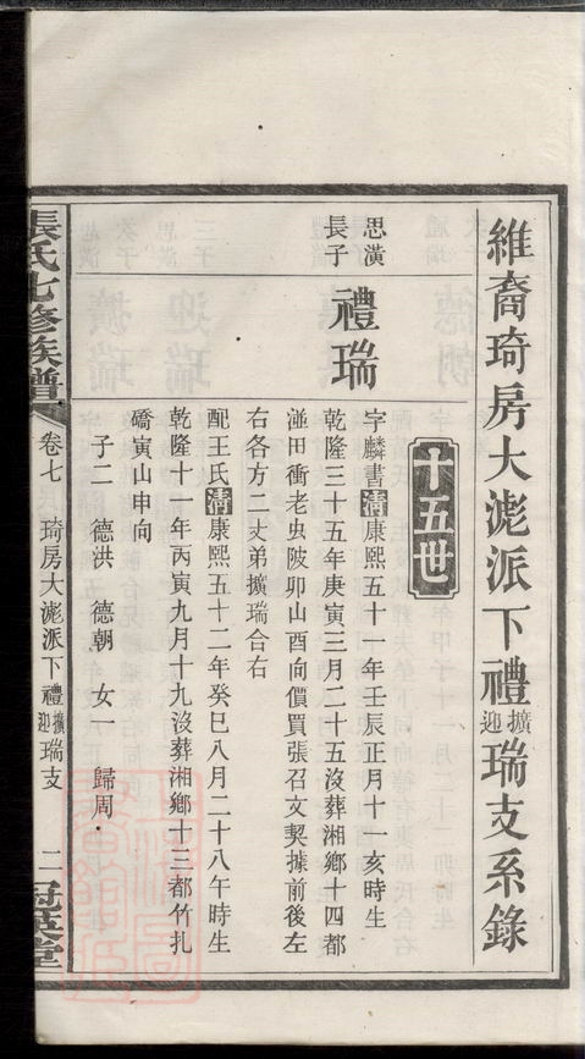 維裔琦房大滮派下禮擴迎瑞支系錄
十五世
思潢
長子
禮瑞
字麟書清康熙五十一年壬辰正月十一亥時生
乾隆三十五年庚寅三月二十五沒葬湘鄉十四都
湴田衝老虫陂卯山酉向價買張召文契據前後左
右各方二丈弟擴瑞合右
配王氏清康熙五十二年癸巳八月二十八午時生
乾隆十一年丙寅九月十九沒葬湘鄉十三都竹扎
礄寅山申向
子二 德洪 德朝 女一 歸周
張氏七修族譜
卷七 琦房大滮派下禮擴迎瑞支 二
冠英堂